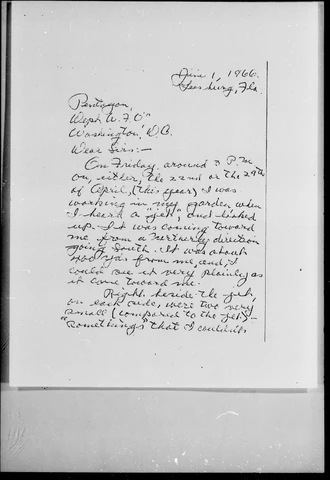 June 1, 1966.
Leesburg, Fla.
Pentagon,
Dept. U.F.O"
Washington, D.C.
Dear Sirs:-
On Friday, around 3 P.M
on, either, the 22nd or the 29th
of April, (this year) I was
working in my garden when
I heard a "jet", and looked
up. It was coming toward
me from a northerly direction
going South. It was about
yds from me, and, I
could see it very plainly as
it came toward me.
Right, beside the jet,
on each side, were two very
small (compared to the jet)-
"somethings" that I couldn't